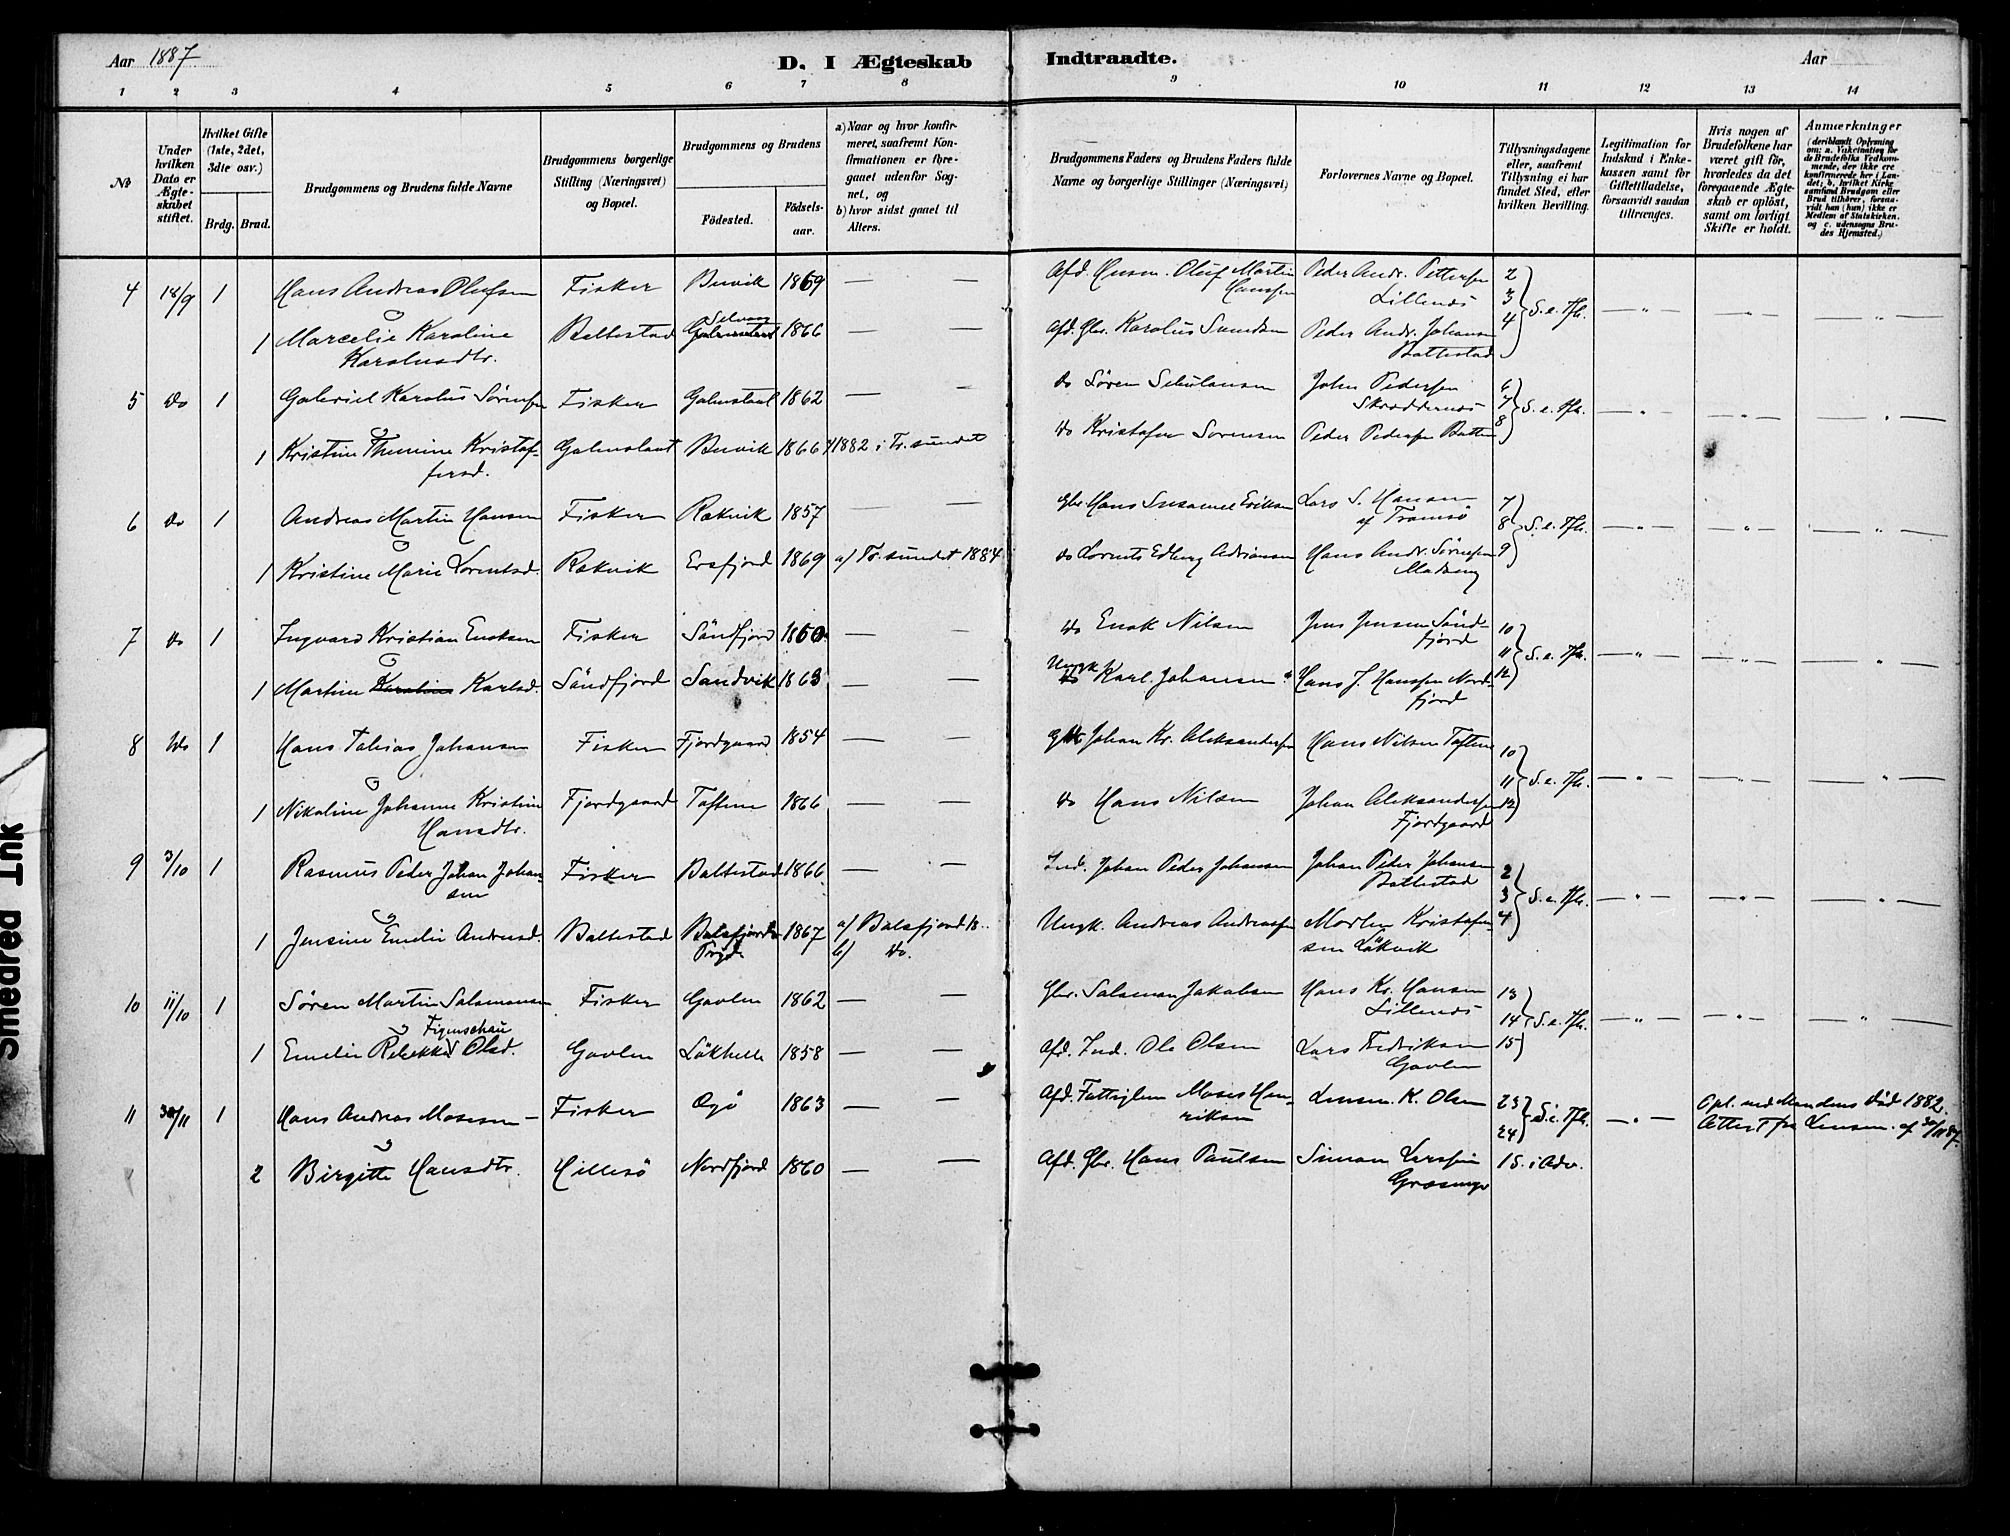 Aar 1887.
D. I Ægteskab Indtraadte.
Aar
1 2 3 4 5 6 7 8 9 10 11 12 13 14
No
Under hvilken Dato er Ægteskabet stiftet.
Hvilket Gifte (1ste, 2det, 3die osv.)
Brdg. Brud.
Brudgommens og Brudens fulde Navne
Brudgommens borgerlige Stilling (Næringsvei) og Bopæl.
Brudgommens og Brudens
Födested. Födselsaar.
a) Naar og hvor konfirmeret, saafremt Konfirmationen er foregaaet udenfor Sognet, og
b) hvor sidst gaaet til Alters.
Brudgommens Faders og Brudens Faders fulde Navne og borgerlige Stillinger (Næringsvei)
Forlovernes Navne og Bopæl.
Tillysningsdagene eller, saafremt Tillysning ei har fundet Sted, efter hvilken Bevilling.
Legitimation for Indskud i Enkekassen samt for Giftetilladelse, forsaavidt saadan tiltrænges.
Hvis nogen af Brudefolkene har været gift för, hvorledes da det foregaaende Ægteskab er oplöst, samt om lovligt Skifte er holdt.
Anmærkninger
(deriblandt Oplysning om: a. Vakcination for de Brudefolks Vedkommende, der ikke ere konfirmerede her i Landet; b. hvilket Kirkesamfund Brudgom eller Brud tilhører, forsaavidt han (hun) ikke er Medlem af Statskirken. og c. udensogns Brudes Hjemsted.)
4 18/9 1 Hans Andreas Olufsen Fisker Buvik 1869 — — Afd. Husm. Oluf Martin Hanssen Peder Andr. Pettersen Lillenes 2 3 4 S. e. Tfh. — " — — " — — " —
1 Marcelie Karoline Karolusdtr. Baltestad Selvaag 1866 — — Afd. Gbr. Karolus Simonsen Peder Andr. Johansen Baltestad
5 Do 1 Gabriel Karolus Sørensen Fisker Galnslaat 1862 — — Do Søren John Pedersen Skræddernes 6 7 8 S. e. Tfh. — " — — " — — " —
1 Kristine Kristoffersd. Galnslaat Buvik 1866 1882 i Tr.sundet Do Kristofer Sørensen Peder Pedersen
6 Do 1 Andreas Martin Hansen Fisker Rækvik 1857 — — Gbr. Hans Susamel Eriksen Lars S. Hansen af Tromsö 7 8 9 S. e. Tfh. — " — — " — — " —
1 Kristine Marie Lorentsd. Rækvik Ersfjord 1869 a/ Tr.sundet 1884 Do Lorents Edberg Adriansen Hans Andr. Sörensen
7 Do 1 Ingvard Kristian Enoksen Fisker Söndfjord 1860 — — Do Enok Nilsen Jens Jensen Söndfjord 10 11 12 S. e. Tfh. — " — — " — — " —
1 Martine Karlsd. Söndfjord Sandvik 1863 — — Ungk. Karl Johansen Hans J. Hanssen Nordfjord
8 Do 1 Hans Tobias Johansen Fisker Fjordgaard 1854 — — Johan Kr. Aleksandersen Hans Nilsen Toften 10 11 12 S. e. Tfh. — " — — " — — " —
1 Nikoline Johanne Kristine Hansdtr. Fjordgaard Toften 1866 — — Do Hans Nilsen Johan Aleksandersen Fjordgaard
9 3/10 1 Rasmus Peder Johan Johansen Fisker Baltestad 1866 — — Ind. Johan Peder Johansen Johan Peder Johansen Baltestad 2 3 4 S. e. Tfh. — " — — " — — " —
1 Jensine Emelie Andreasd. Baltestad Balsfjord 1867 a/ Balsfjord K. b/ Do. Ungk. Andreas Andreassen Morten Kristofersen Lökvik
10 11/10 1 Søren Martin Salamonsen Fisker Gavlen 1862 — — Gbr. Salamon Jakobsen Hans Kr. Hansen Lillenes 13 14 15 S. e. Tfh. — " — — " — — " —
1 Emelie Rebekka Figenschau Olsd. Gavlen Lökhelle 1858 — — Afd. Ind. Ole Olsen Lars Fredriksen Gavlen
11 30/11 1 Hans Andreas Mosesen — Fisker Ægö 1863 — — Afd. Fattiglem Moses Henriksen Lensm. K. Olsen 23 24 S. e. Tfh. — " — Opl. ved Mandens Död 1882. Attest fra Lensm. af 30/11 87.
2 Birgitte Hansdtr. Hillesö Nordfjord 1860 — — Afd. Gbr. Hans Paulsen Simon Larssen 1 S. i Adv.
Smedred Ink